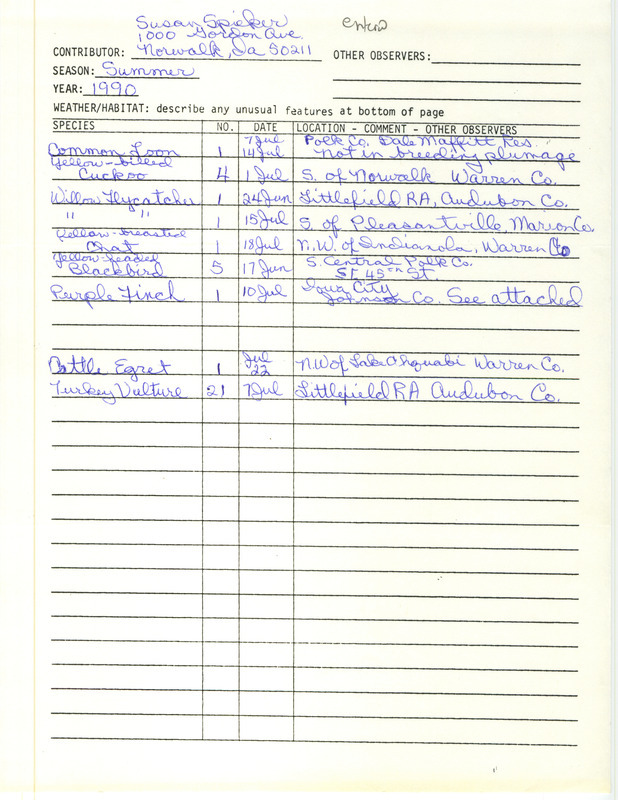 Susan Spieker
1000 Gordon Ave.
CONTRIBUTOR: Norwalk, Ia 50211
OTHER OBSERVERS:
SEASON: Summer
YEAR: 1990
WEATHER/HABITAT: describe any unusual features at bottom of page
SPECIES NO. DATE LOCATION - COMMENT - OTHER OBSERVERS
7 Jul Polk Co. Dale Maffitt Res.
Common Loon 1 14 Jul Not in breeding plumage
Yellow-billed
Cuckoo 4 1 Jul S. of Norwalk Warren Co.
Willow Flycatcher 1 24 Jun Littlefield RA, Audubon Co.
" " 1 15 Jul S. of Pleasantville Marion Co.
Yellow-breasted
Chat 1 18 Jul N.W. of Indianola, Warren Co
Yellow-headed S. Central Polk Co.
Blackbird 5 17 Jun SE 45th St.
Iowa City
Purple Finch 1 10 Jul Johnson Co. See attached
Jul
Cattle Egret 1 22 N.W of Lake Ahquabi Warren Co.
Turkey Vulture 21 7 Jul Littlefield RA Audubon Co.